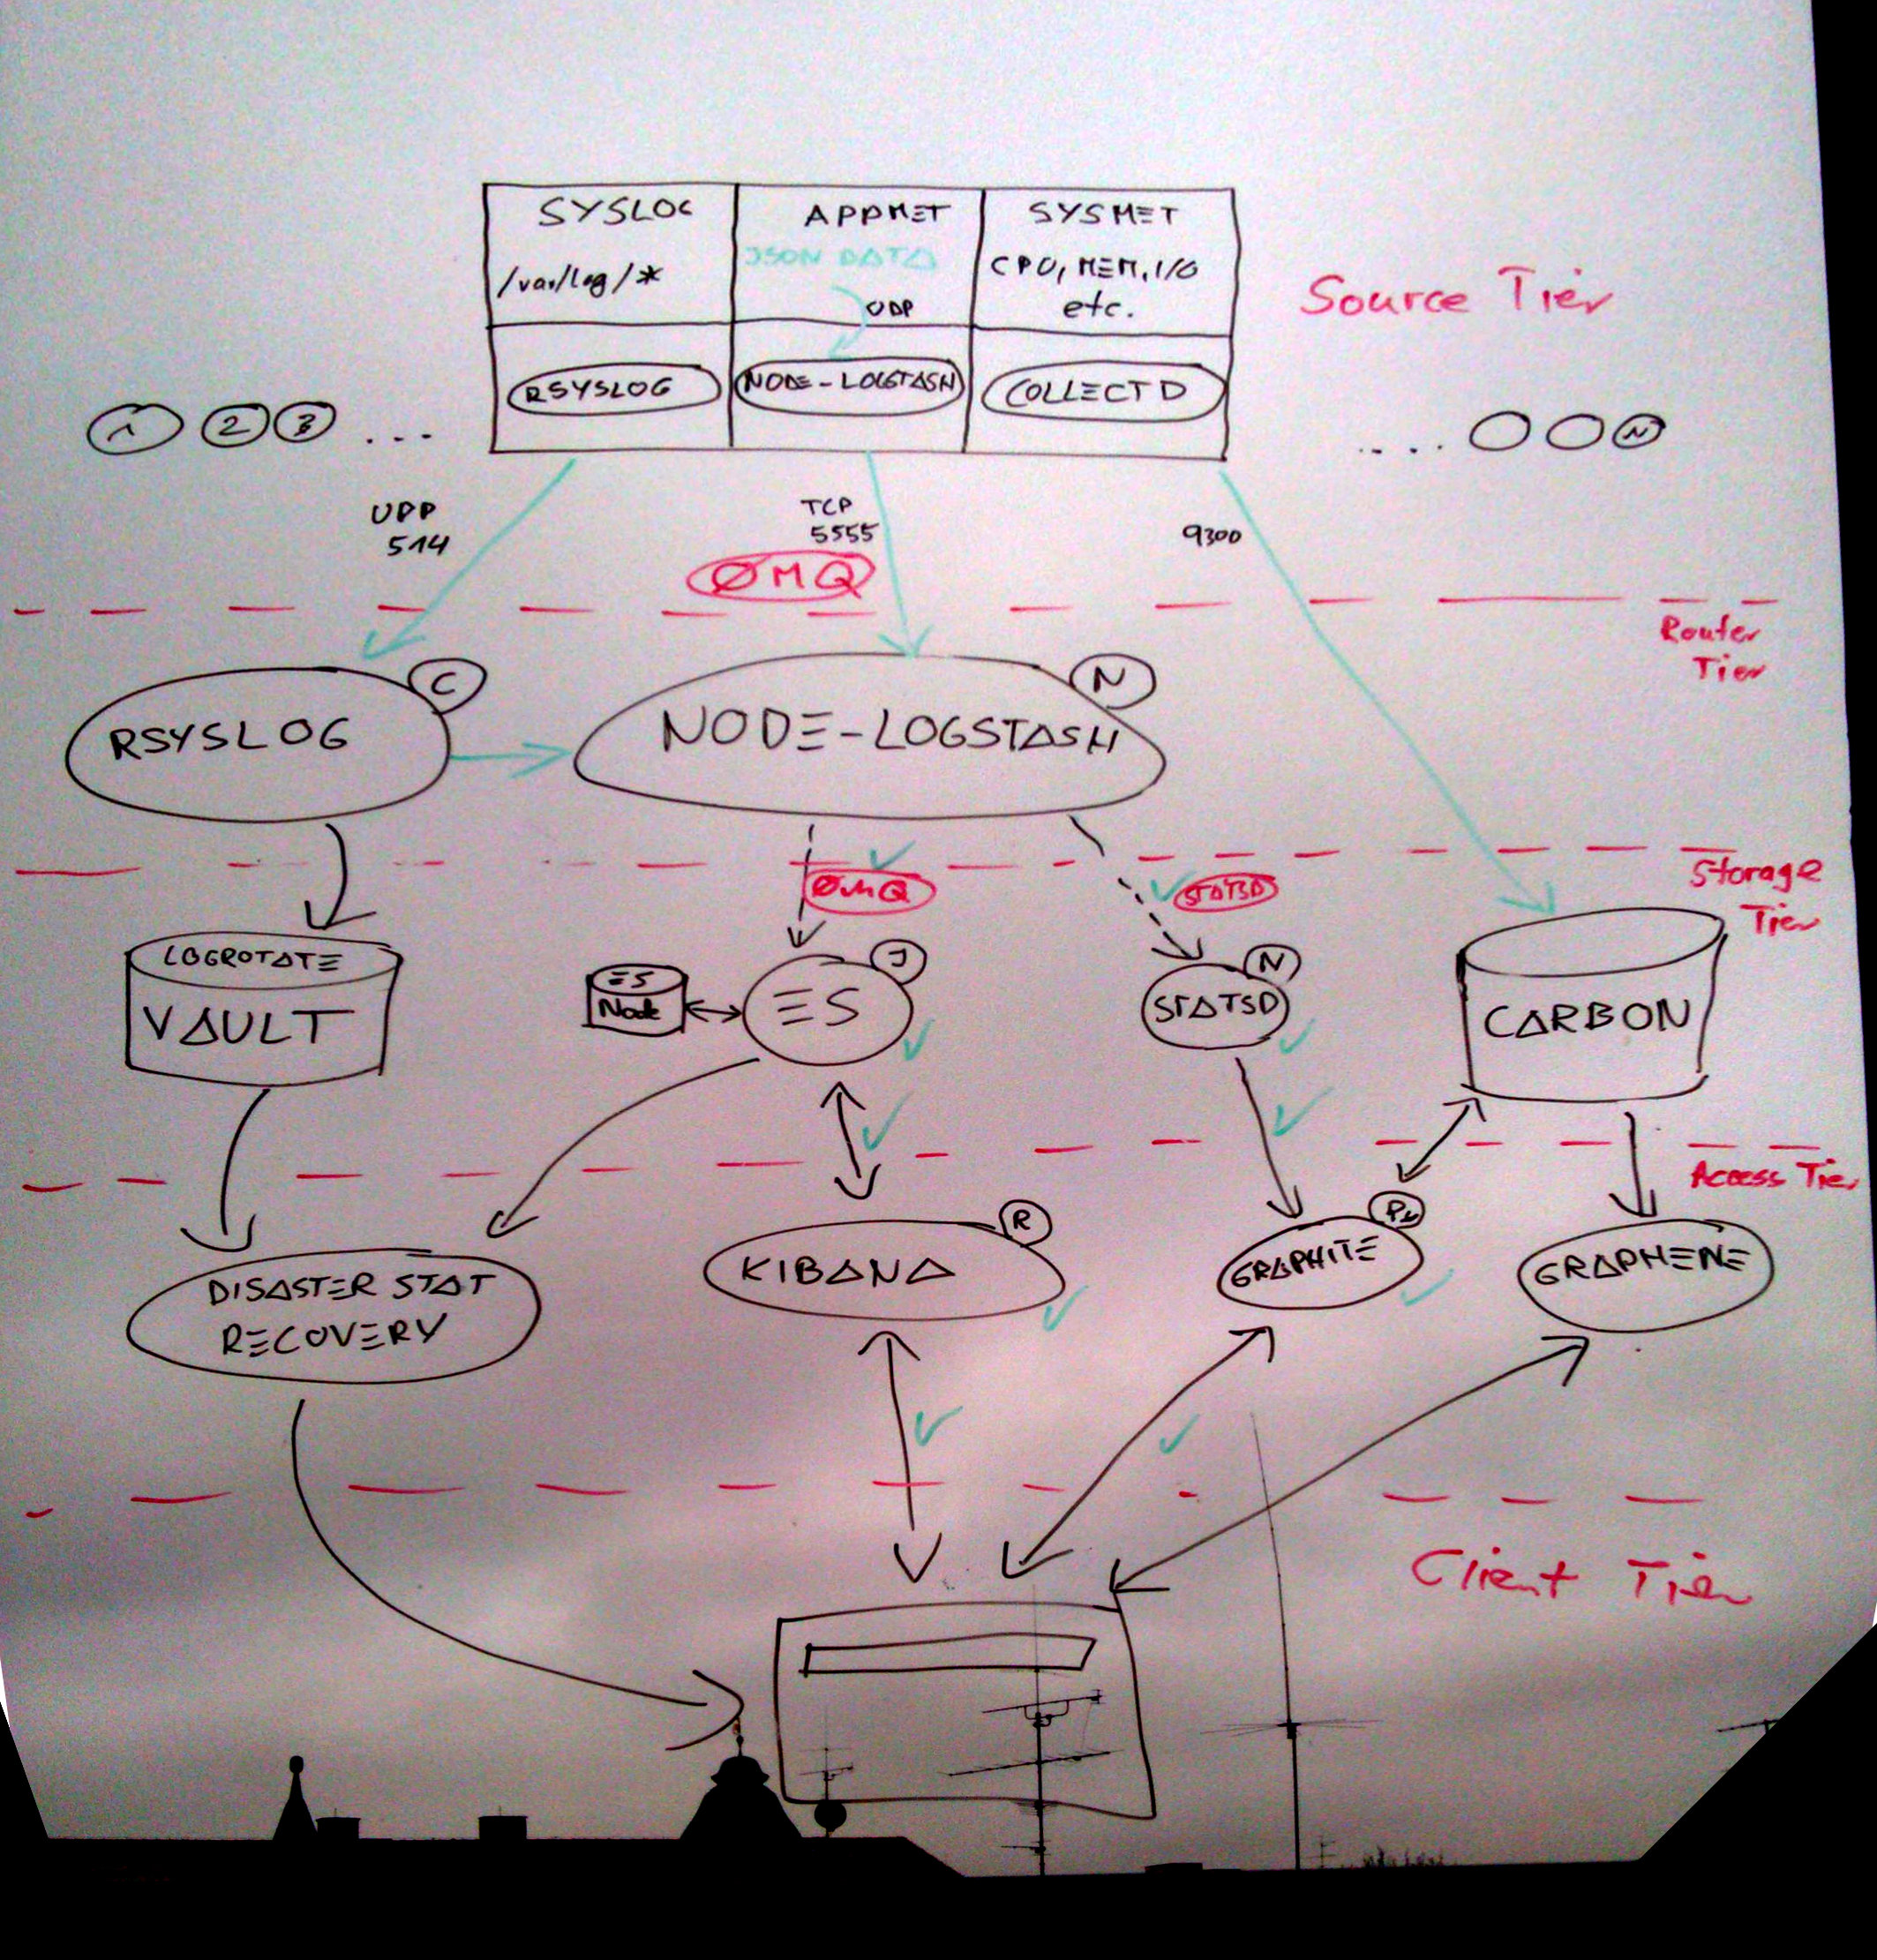 SYSLOG
APPMET
SYSMET
/var/log/*
JSON DATA
CPU, MEM, I/O
etc.
UDP
Source Tier
RSYSLOG
NODE-LOGSTASH
COLLECTD
1 2 3 ...
.... N
UDP
514
TCP
5555
9300
ØMQ
Router
Tier
C
N
RSYSLOG
NODE-LOGSTASH
Storage
Tier
ØMQ
STATSD
LOGROTATE
VAULT
ES
Node
J
ES
N
STATSD
CARBON
Access Tier
DISASTER STAT
RECOVERY
R
KIBANA
Py
GRAPHITE
GRAPHENE
Client Tier